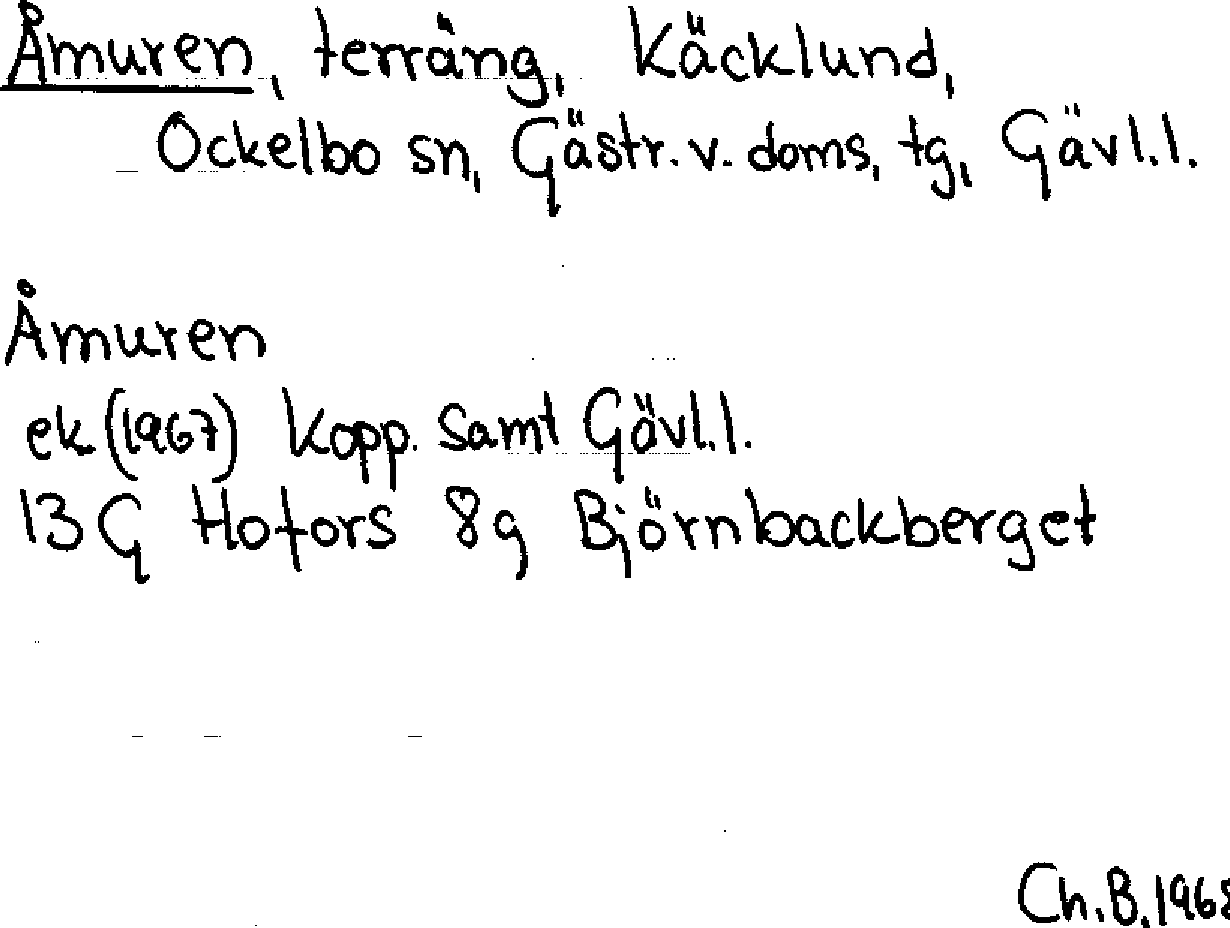 Åmuren, terräng, Käcklund,
Ockelbo sn, Gästr. v. doms, tg, Gävl. l.
Åmuren
ek (1967) Kopp. samt Gävl. l.
13 G Hofors 8g Björnbackberget
Ch. B. 1968